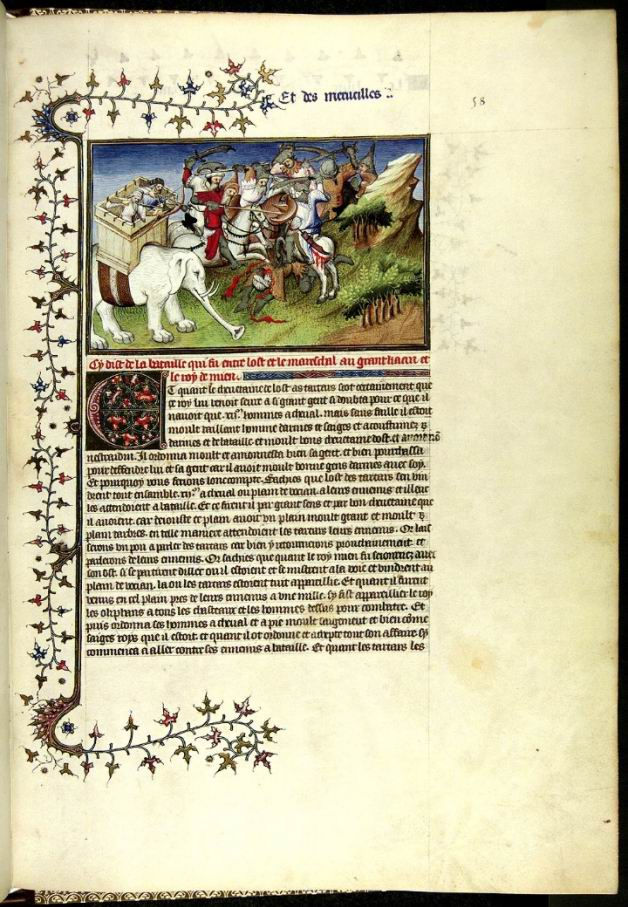 Et des merueilles
58
Cy dist de la bataille qui fu entre lost et le mareschal au grant kaan et
le roy de mien.
Et quant le cheuetaine de lost as tartars scot certainement que
ce roy lui venoit seure a si grant gent si doubta pour ce que il
nauoit que .xii. hommes a cheual. mais sans faille il estoit
moult vaillant homme darmes et saiges et acoustumez
darmes et de bataille et moult bons cheuetaine dost. et
Il ordonna moult et amonnesta bien sa gent. et bien pourchassa
pour deffendre lui et sa gent car il auoit moult bonne gens darmes auec soy.
Et pourquoy vous ferions lonc compte. Sachies que lost des tartars sen vin
drent tout ensemble a cheual ou plain de vocian a leurs ennemis et illeuc
les attendoient a bataille. Et ce firent il par grant sens et par bon cheuetaine que
il auoient. car de iouste ce plain auoit un plain moult grant et moult
plain darbres. en telle maniere attendoient les tartars leurs ennemis. Or lais
serons un pou a parler des tartars car bien y retournerons prouchainement. et
parlerons de leurs ennemis. Or sachies que quant le roy mien fu seiournez auec
son ost. si se partirent dillec ou il estoient et se mistrent a la voie et vindrent au
plain de vocian. la ou les tartars estoient tuit appareillie. Et quant il furent
venus en cel plain pres de leurs ennemis a une mille. sy fist appareillier le roy
les oliphans a tous les chasteaux et les hommes dessus pour combatre. Et
puis ordonna ses hommes a cheual et a pie moult saigement et bien come
saiges roys que il estoit. et quant il ot ordonne et adrecie tout son affaire sy
commenca a aller contre ses ennemis a bataille. Et quant les tartars les